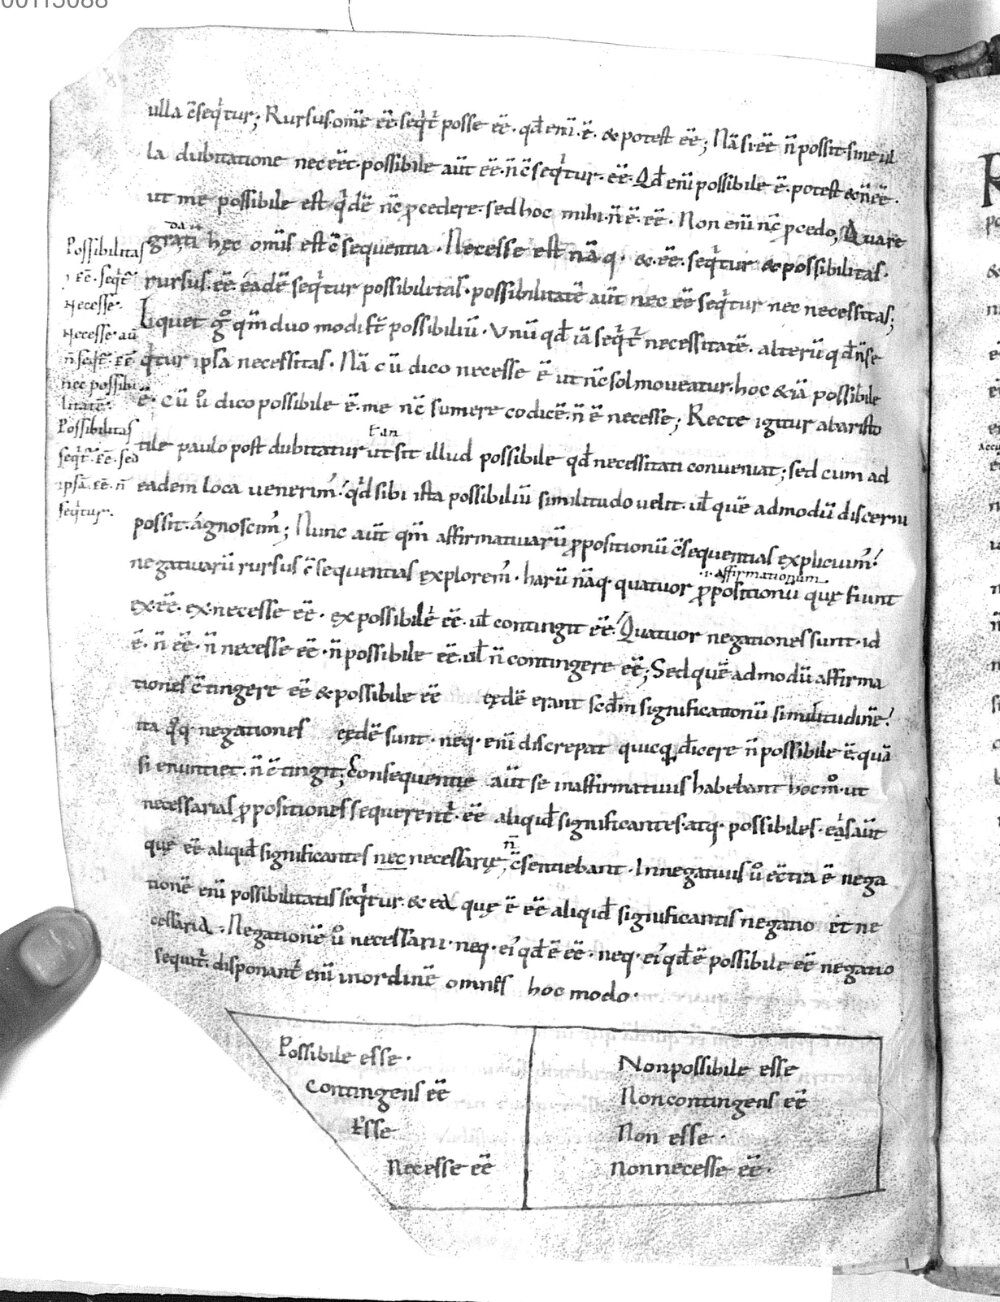 00113088
ulla c̄seq̇tur; Rursus. om̄e ēe. seq̇t̄ posse ēe. qđ eni ē. & potest ēe; Nā si ēe n̄ possit. sine ul
la dubitatione nec eēt. possibile aūt ēe. n̄ c̄seq̇tur. ēe. Qđ eni possibile ē. potest & n̄ ēe.
ut me possibile est q̇dē nc̄ p̱cedere. sed hoc mihi n̄ ē. ēe. Non eni nc̄ p̱cedo; Quare
hec omīs est c̄sequentia. Necesse est nāq. & ēe. seq̇tur & possibilitas.
rursus. ēe. eadē seq̇tur possibilitas. possibilitatē aūt nec ēe seq̇tur nec necessitas;
Liquet g̊ qm̄ duo modi st̄ possibiliū. Unū qđ iā seq̇t̄ necessitatē. alterū qđ n̄ se
q̇tur ipsa necessitas. Nā cū dico necesse ē ut nc̄ sol moveatur. hoc & iā possibile
ē. Cū ů dico possibile ē. me nc̄ sumere codicē. n̄ ē necesse; Recte igitur ab aristo
ł an
tile paulo post dubitatur ut sit illud possibile qđ necessitati conveniat; sed cum ad
eadem loca venerim᾽. qđ sibi ista possibiliū similitudo velit. uł quē admodū discerni
possit. agnoscim᾽; Nunc aūt qm̄ affirmativarū p̱positionū c̄sequentias explicuim᾽.
negativarū rursus c̄sequentias explorem᾽. harū nāq. quatuor p̱positionū quę fiunt
.i. affirmationum
ex ēe. ex necesse ēe. ex possibile ēe. uł contingit ēe. Quatuor negationes sunt. id
ē. n̄ ēe. n̄ necesse ēe. n̄ possibile ēe. uł n̄ contingere ēe; Sed quē admodū affirma
tiones c̄tingere ēe & possibile ēe ęędē erant scđm significationū similitudinē.
ita q̊q negationes ęędē sunt. neq. eni discrepat quicq̄ dicere n̄ possibile ē. quā
si enuntiet. n̄ c̄tingit; Consequentie aūt se in affirmativis habebant hoc m̊. ut
necessarias p̱positiones sequerent̄. ēe aliqid significantes. atq. possibiles. eas aūt
quę ēe aliqid significantes nec necessarię n̄ c̄sentiebant. In negativis ů ēc̄tra ē nega
tionē eni possibilitatis seq̇tur. & ea quę ē ēe aliqid significantis negatio et ne
cessaria. Negationē ů necessarii. neq. ei᾽ qđ ē ēe. neq. ei᾽ qđ ē possibile ēe negatio
sequit̄. disponant̄ eni in ordinē omnes hoc modo.
Possibilitas
ēe. seq̇t̄
Necesse.
Necesse. aū
n̄ seq̇t̄. ēe
nec possibi
litatē.
Possibilitas
seq̇t̄. ēe. sed
ipsā. ēe. n̄
seq̇tur.
Possibile esse.
Contingens ēe
Esse
Necesse ēe
Non possibile esse
Non contingens ēe
Non esse.
Non necesse ēe.